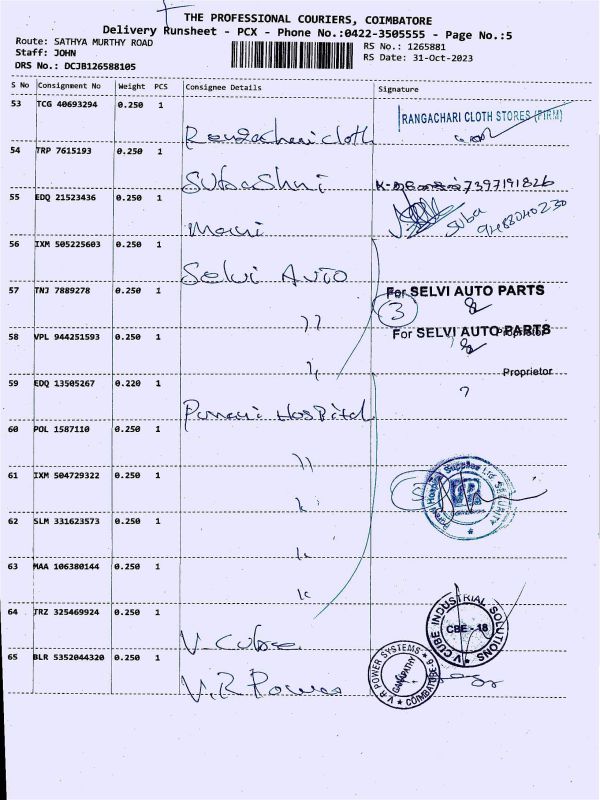 THE PROFESSIONAL COURIERS, COIMBATORE
Delivery Runsheet - PCX - Phone No.:0422-3505555 - Page No.:5
Route: SATHYA MURTHY ROAD
RS No.: 1265881
Staff: JOHN
RS Date: 31-Oct-2023
DRS No.: DCJB126588105
S No Consignment No Weight PCS Consignee Details Signature
53 TCG 40693294 0.250 1
RANGACHARI CLOTH STORES (FIRM)
Rangachari cloth
54 TRP 7615193 0.250 1
Subashni 7397191826
55 EDQ 21523436 0.250 1
Suba
9488040230
56 IXM 505225603 0.250 1
Selvi Auto
57 TNJ 7889278 0.250 1
For SELVI AUTO PARTS
3
"
58 VPL 944251593 0.250 1
For SELVI AUTO PARTS
Proprietor
59 EDQ 13505267 0.220 1
Proprietor
Hospital
60 POL 1587110 0.250 1
"
61 IXM 504729322 0.250 1
5
62 SLM 331623573 0.250 1
63 MAA 106380144 0.250 1
64 TRZ 325469924 0.250 1
V-CUBE INDUSTRIAL SOLUTIONS
CBE - 18
V. Cube
65 BLR 5352044320 0.250 1
V R POWER SYSTEMS
GANAPATHY
COIMBATORE-6
V.R Power